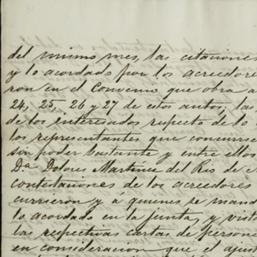 del mismo mes, las citaciones
y lo acordado por los acreedore
ron en el Convenio que obra a
24, 25, 26 y 27 de estos autos, las
de los interesados respecto de lo
los representantes que concurrie
sin poder bastante y entre ellos
Dª Dolores Martinez del Rio de
contestaciones de los acreedores
currieron y a quienes se mand
lo acordado en la junta, y vist
las respectivas cartas de persone
en consideracion que el ajust